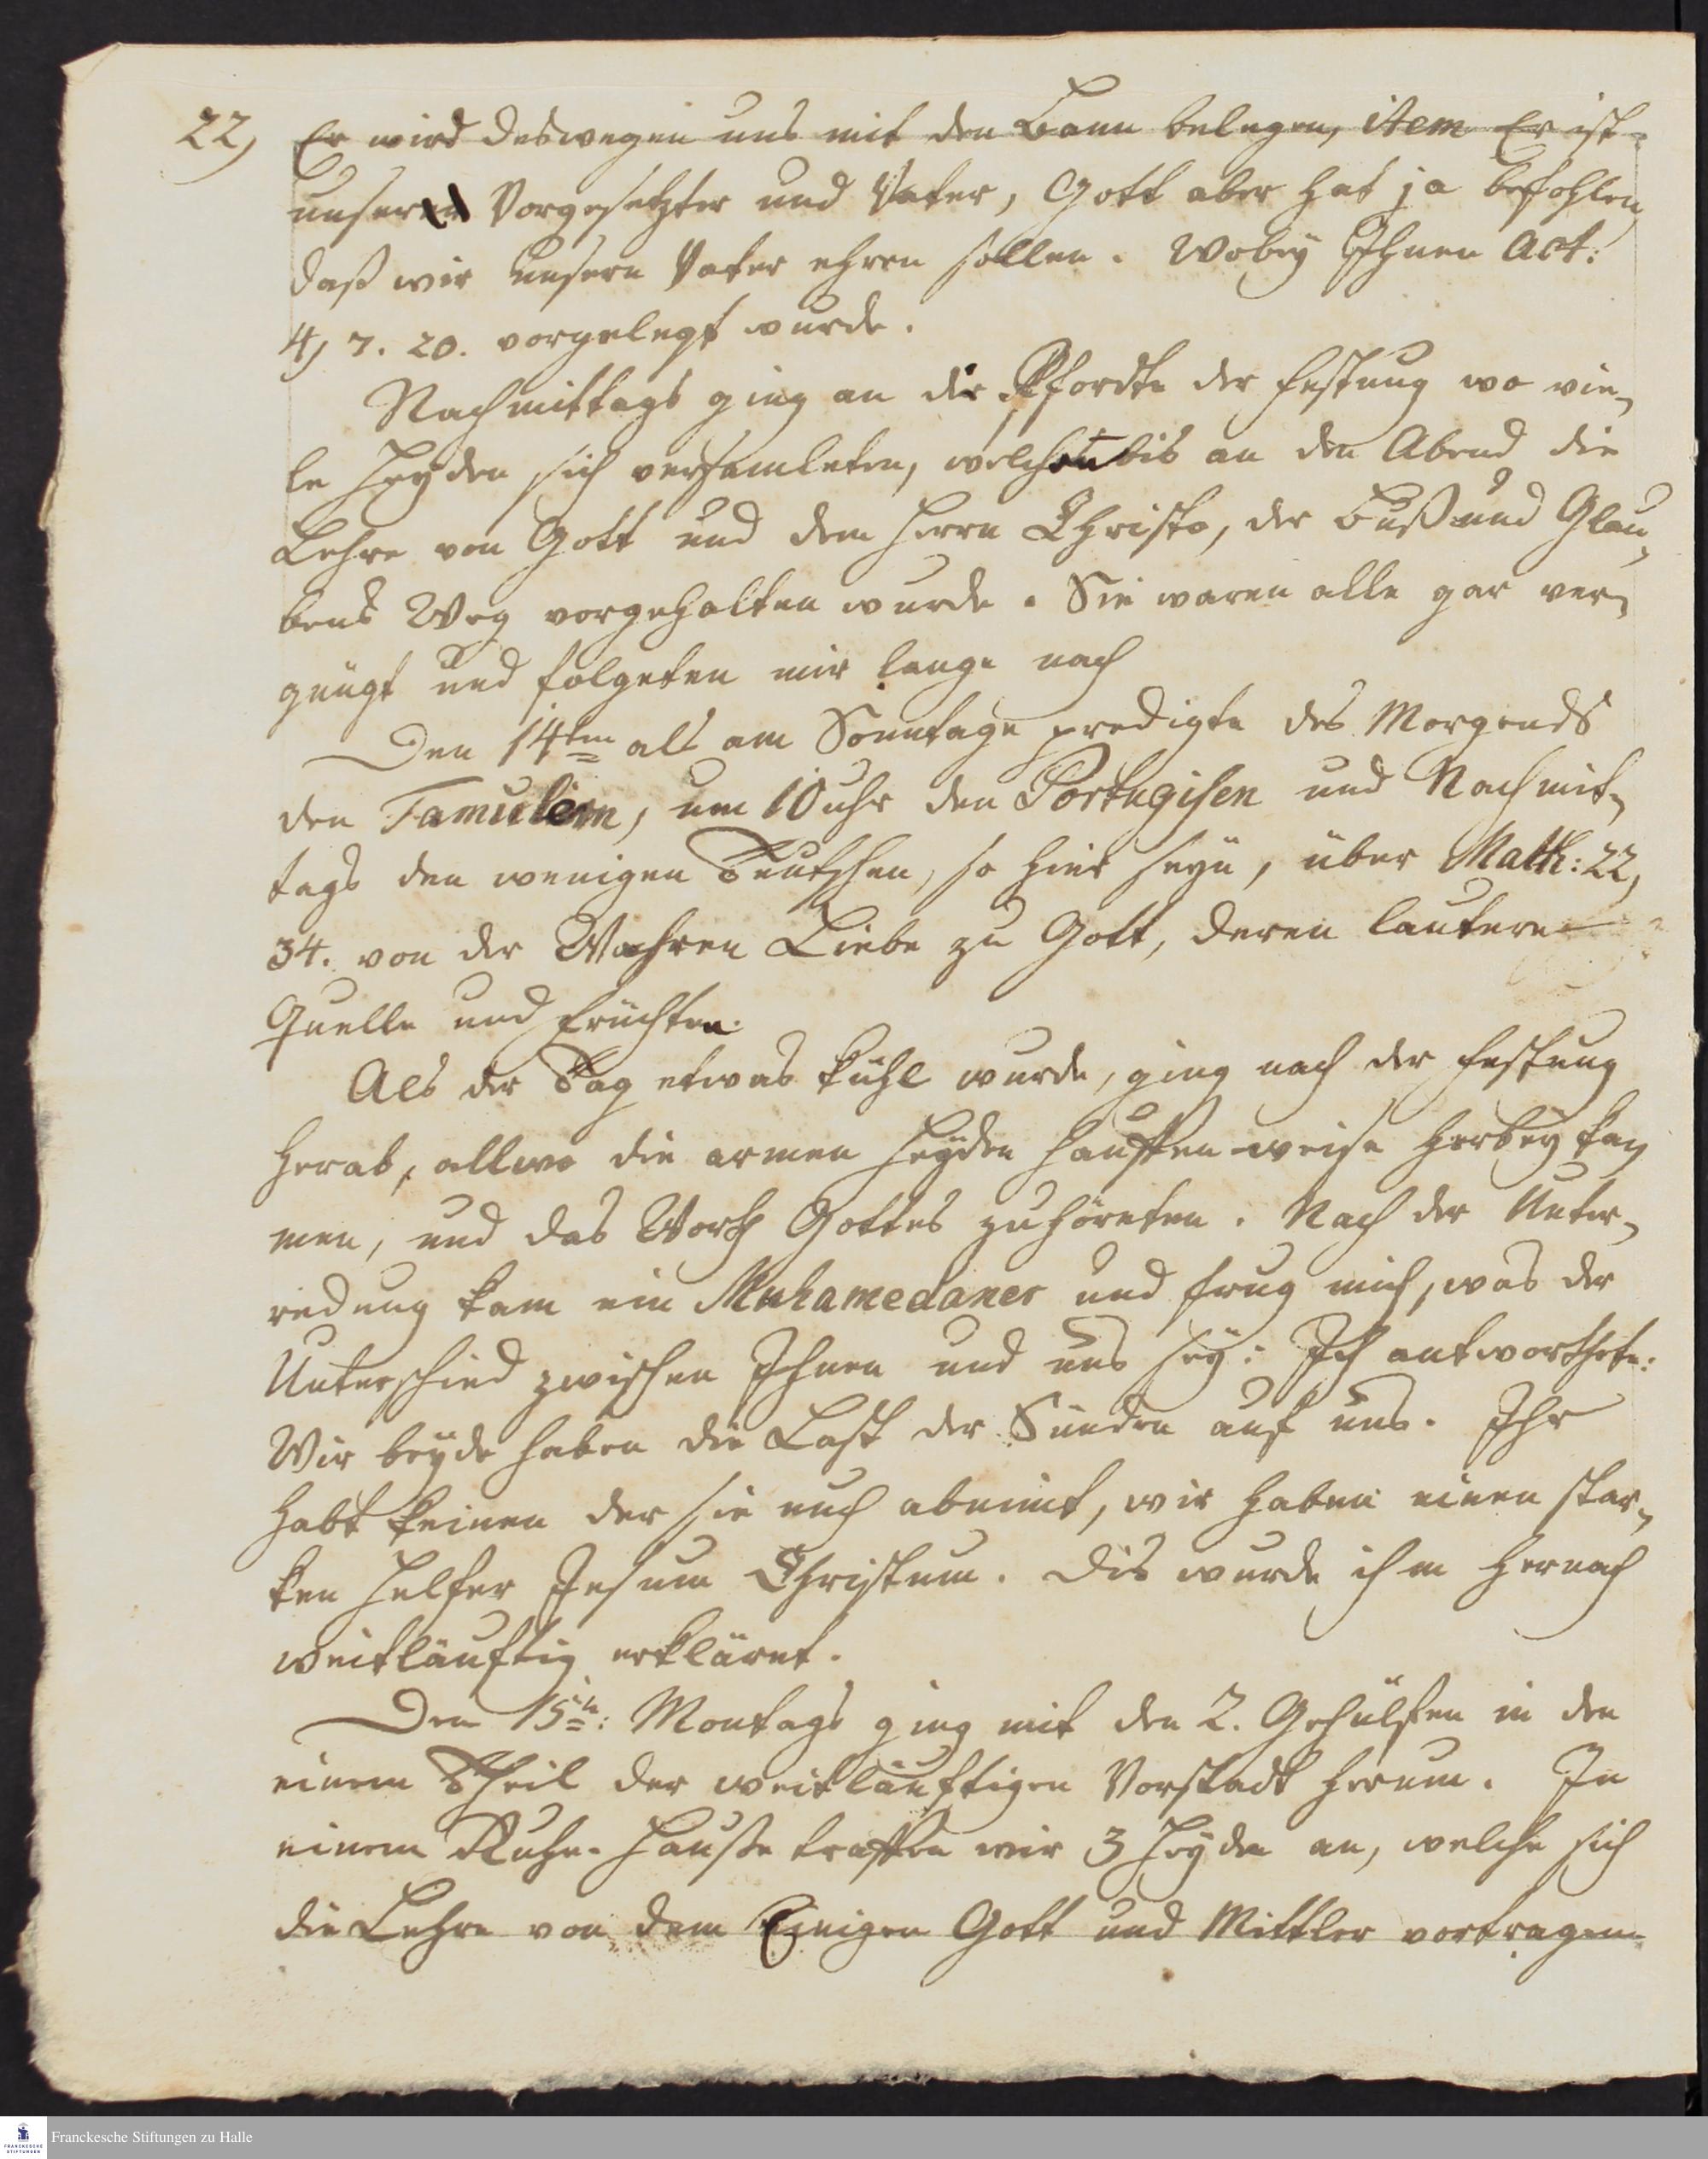 22) Er wird deswegen uns mit den Bann belegen, item Er ist
unser Vorgesetzter und Vater, Gott aber hat ja befohlen,
daß wir unsern Vater ehren sollen. Wobey Ihnen Act:
4, 7. 20. vorgelegt wurde.
Nachmittags ging an die Pfordte der Festung wo vie-
le Heyden sich versamleten, welchen bis an den Abend die
Lehre von Gott und dem Herrn Christo, der Buß und Glau-
bens Weg vorgehalten wurde. Sie waren alle gar ver-
gnügt und folgeten mir lange nach
Den 14ten als am Sonntage predigte des Morgends
den Famulern, um 10 uhr den Portugisen und Nachmit-
tags den wenigen Teutschen, so hier seyn, über Matth: 22,
34. von der Wahren Liebe zu Gott, deren lautere
Quelle und Früchten.
Als der Tag etwas kühl wurde, ging nach der Festung
herab, allwo die armen Heyden hauffen-weise herbey ka-
men, und das Worth Gottes zuhöreten. Nach der Unter-
redung kam ein Muhamedaner und frug mich, was der
Unterschied zwischen Ihnen und uns sey: Ich antworthete:
Wir beyde haben die Last der Sünden auf uns. Ihr
habt keinen der sie euch abnimt, wir haben einen star-
ken Helfer Jesum Christum. Dis wurde ihm hernach
weitläuftig erkläret.
Den 15te: Montags ging mit den 2. Gehülfen in den
einem Theil der weitläuftigen Vorstadt herum. In
einem Ruhe-Hauße traffen wir 3 Heyden an, welche sich
die Lehre von dem Einigen Gott und Mittler vortragen
Franckesche Stiftungen zu Halle